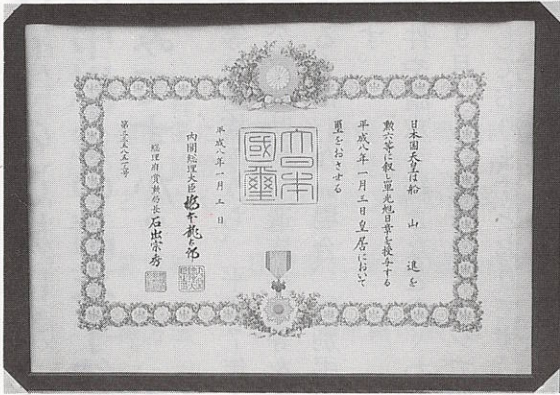 日本国天皇は船山進を
勲六等に叙し単光旭日章を授与する
平成八年一月三日皇居において
璽をおさせる
大日本國璽
平成八年一月三日
内閣総理大臣 橋本龍太郎
総理府賞勲局長 石出宗秀